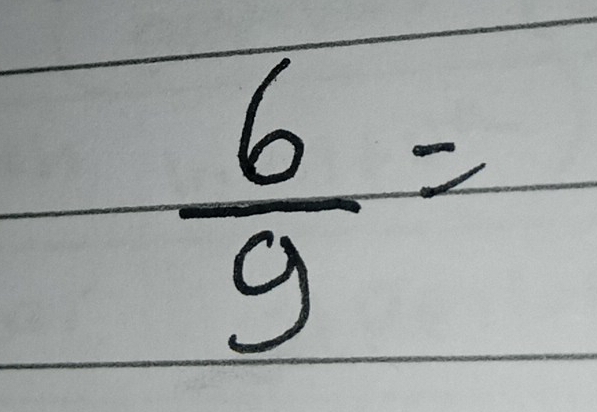 6/9 =